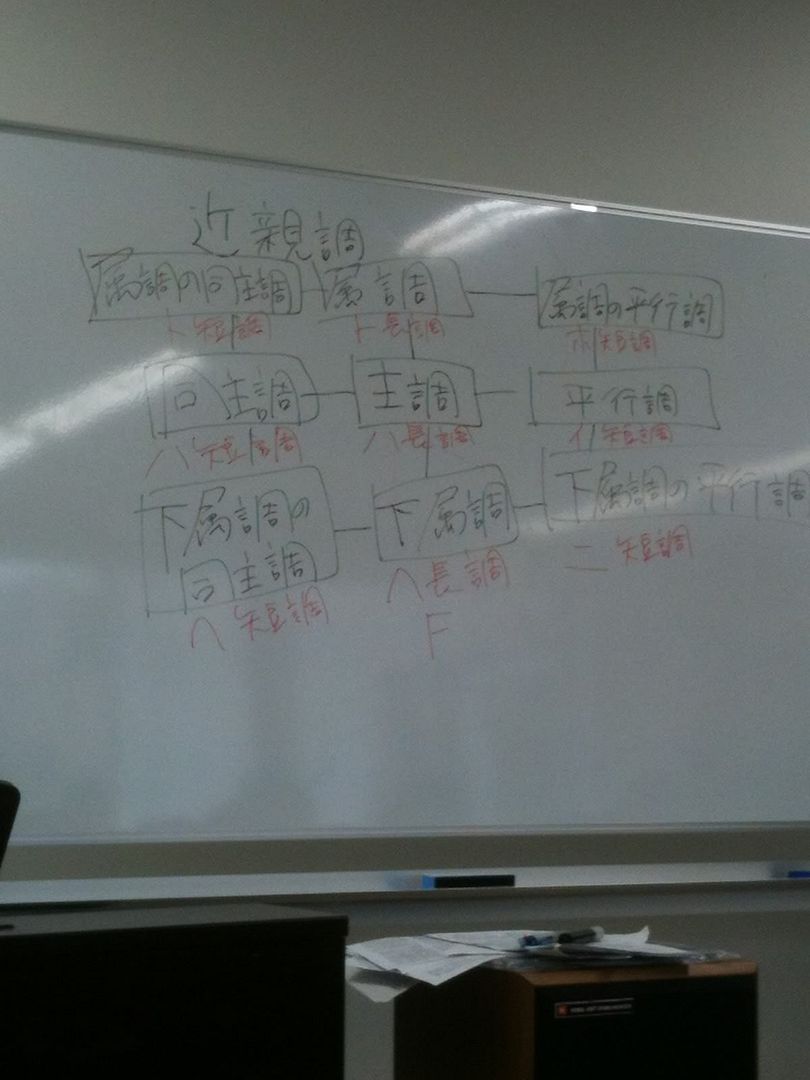 近親調
属調の同主調 属調 属調の平行調
ト短調 ト長調 ホ短調
同主調 主調 平行調
ハ短調 ハ長調 イ短調
下属調の同主調 下属調 下属調の平行調
ヘ短調 ヘ長調 ニ短調
F